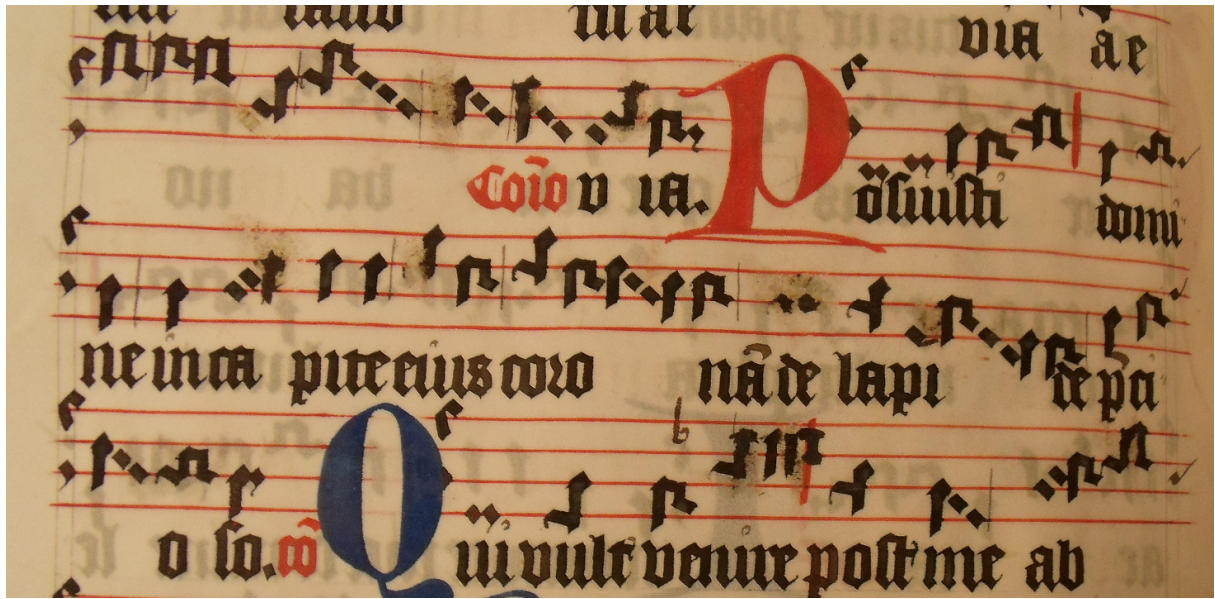 via ae
Co͞io v ia. Posuisti domi
ne in ca pite eius coro nā de lapi de p̄ci
o so. cō Qui vult venire post me ab